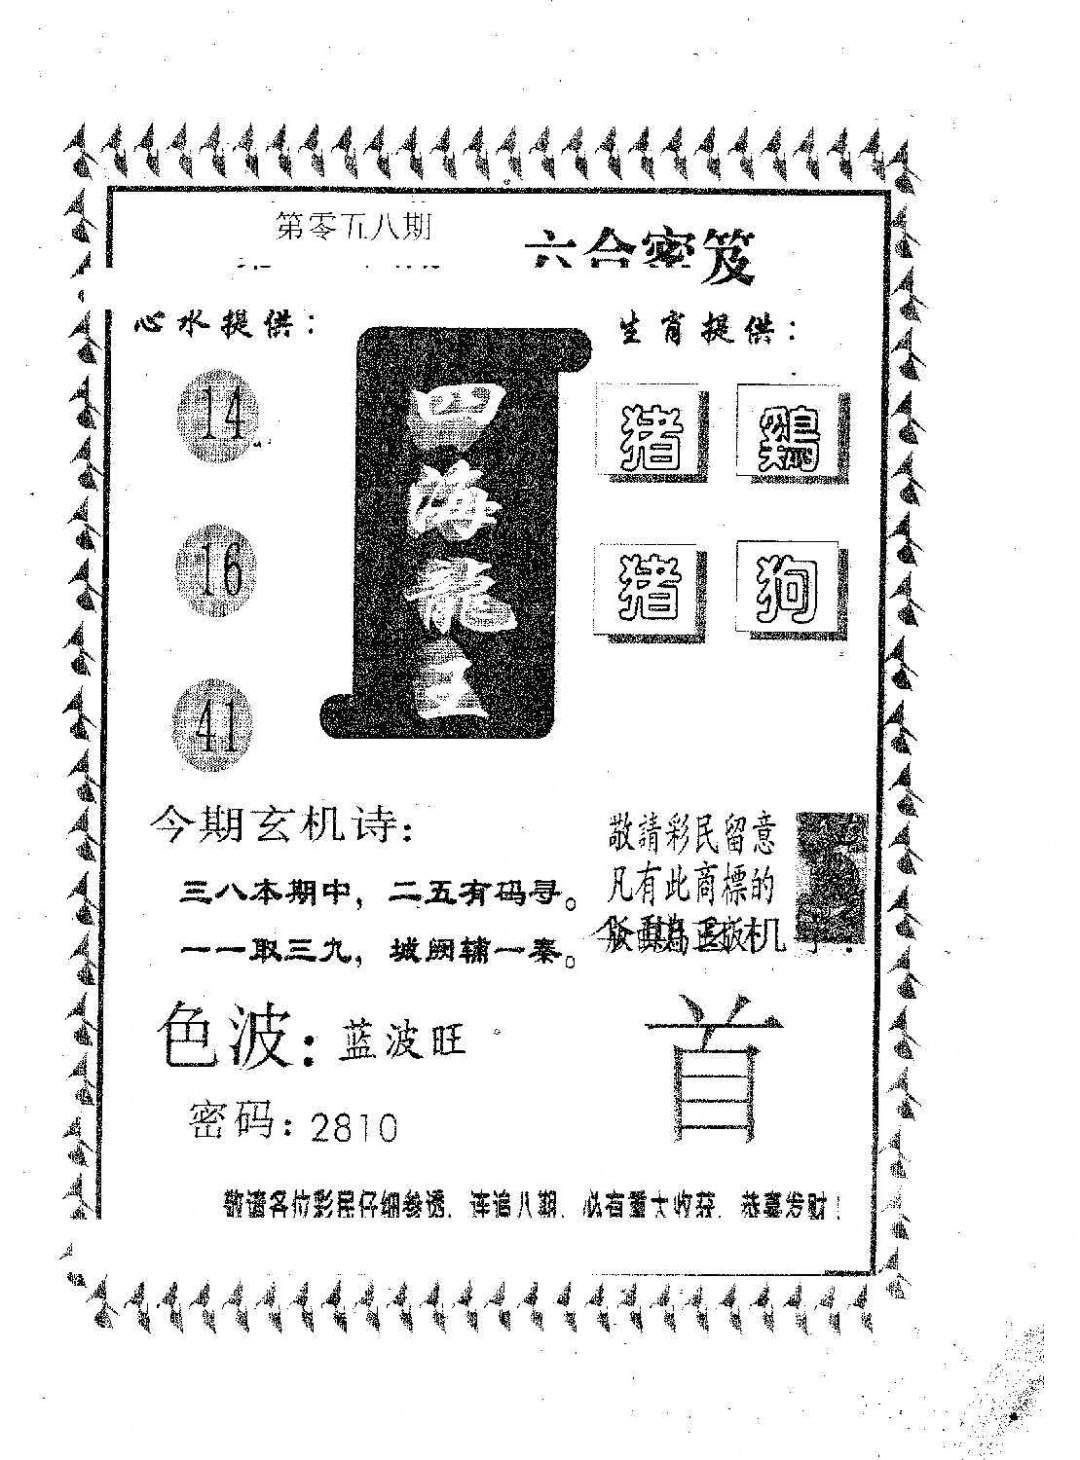 第零五八期
六合密笈
心水提供：
生肖提供：
14
16
41
四海龍王
猪 鷄
猪 狗
今期玄机诗：
三八本期中，二五有码寻。
一一取三九，城阙辅一秦。
敬請彩民留意
凡有此商標的
色波：蓝波旺
首
密码：2810
敬请各位彩民仔细参透，连追八期，必有重大收获，恭喜发财！